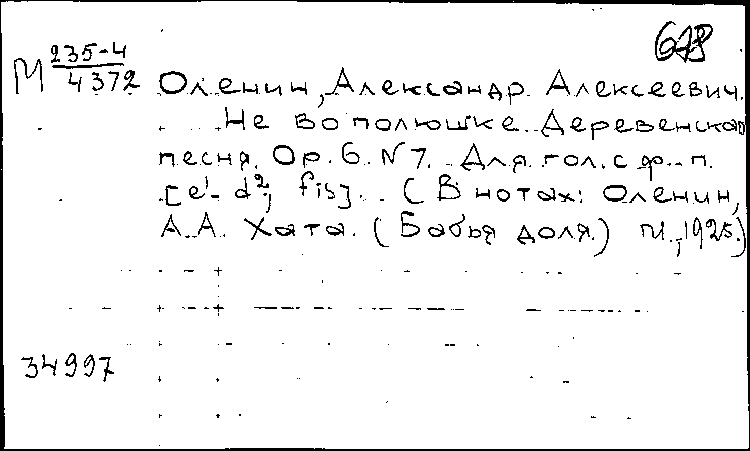 М 235-4/4372
Оленин, Александр Алексеевич.
Не во полюшке. Деревенская
песня. Op. 6. N 7. Для гол. с ф.-п.
[e¹- d², fis]. (В нотах: Оленин,
А.А. Хата. (Бабья доля.) М., 1925.)
34997